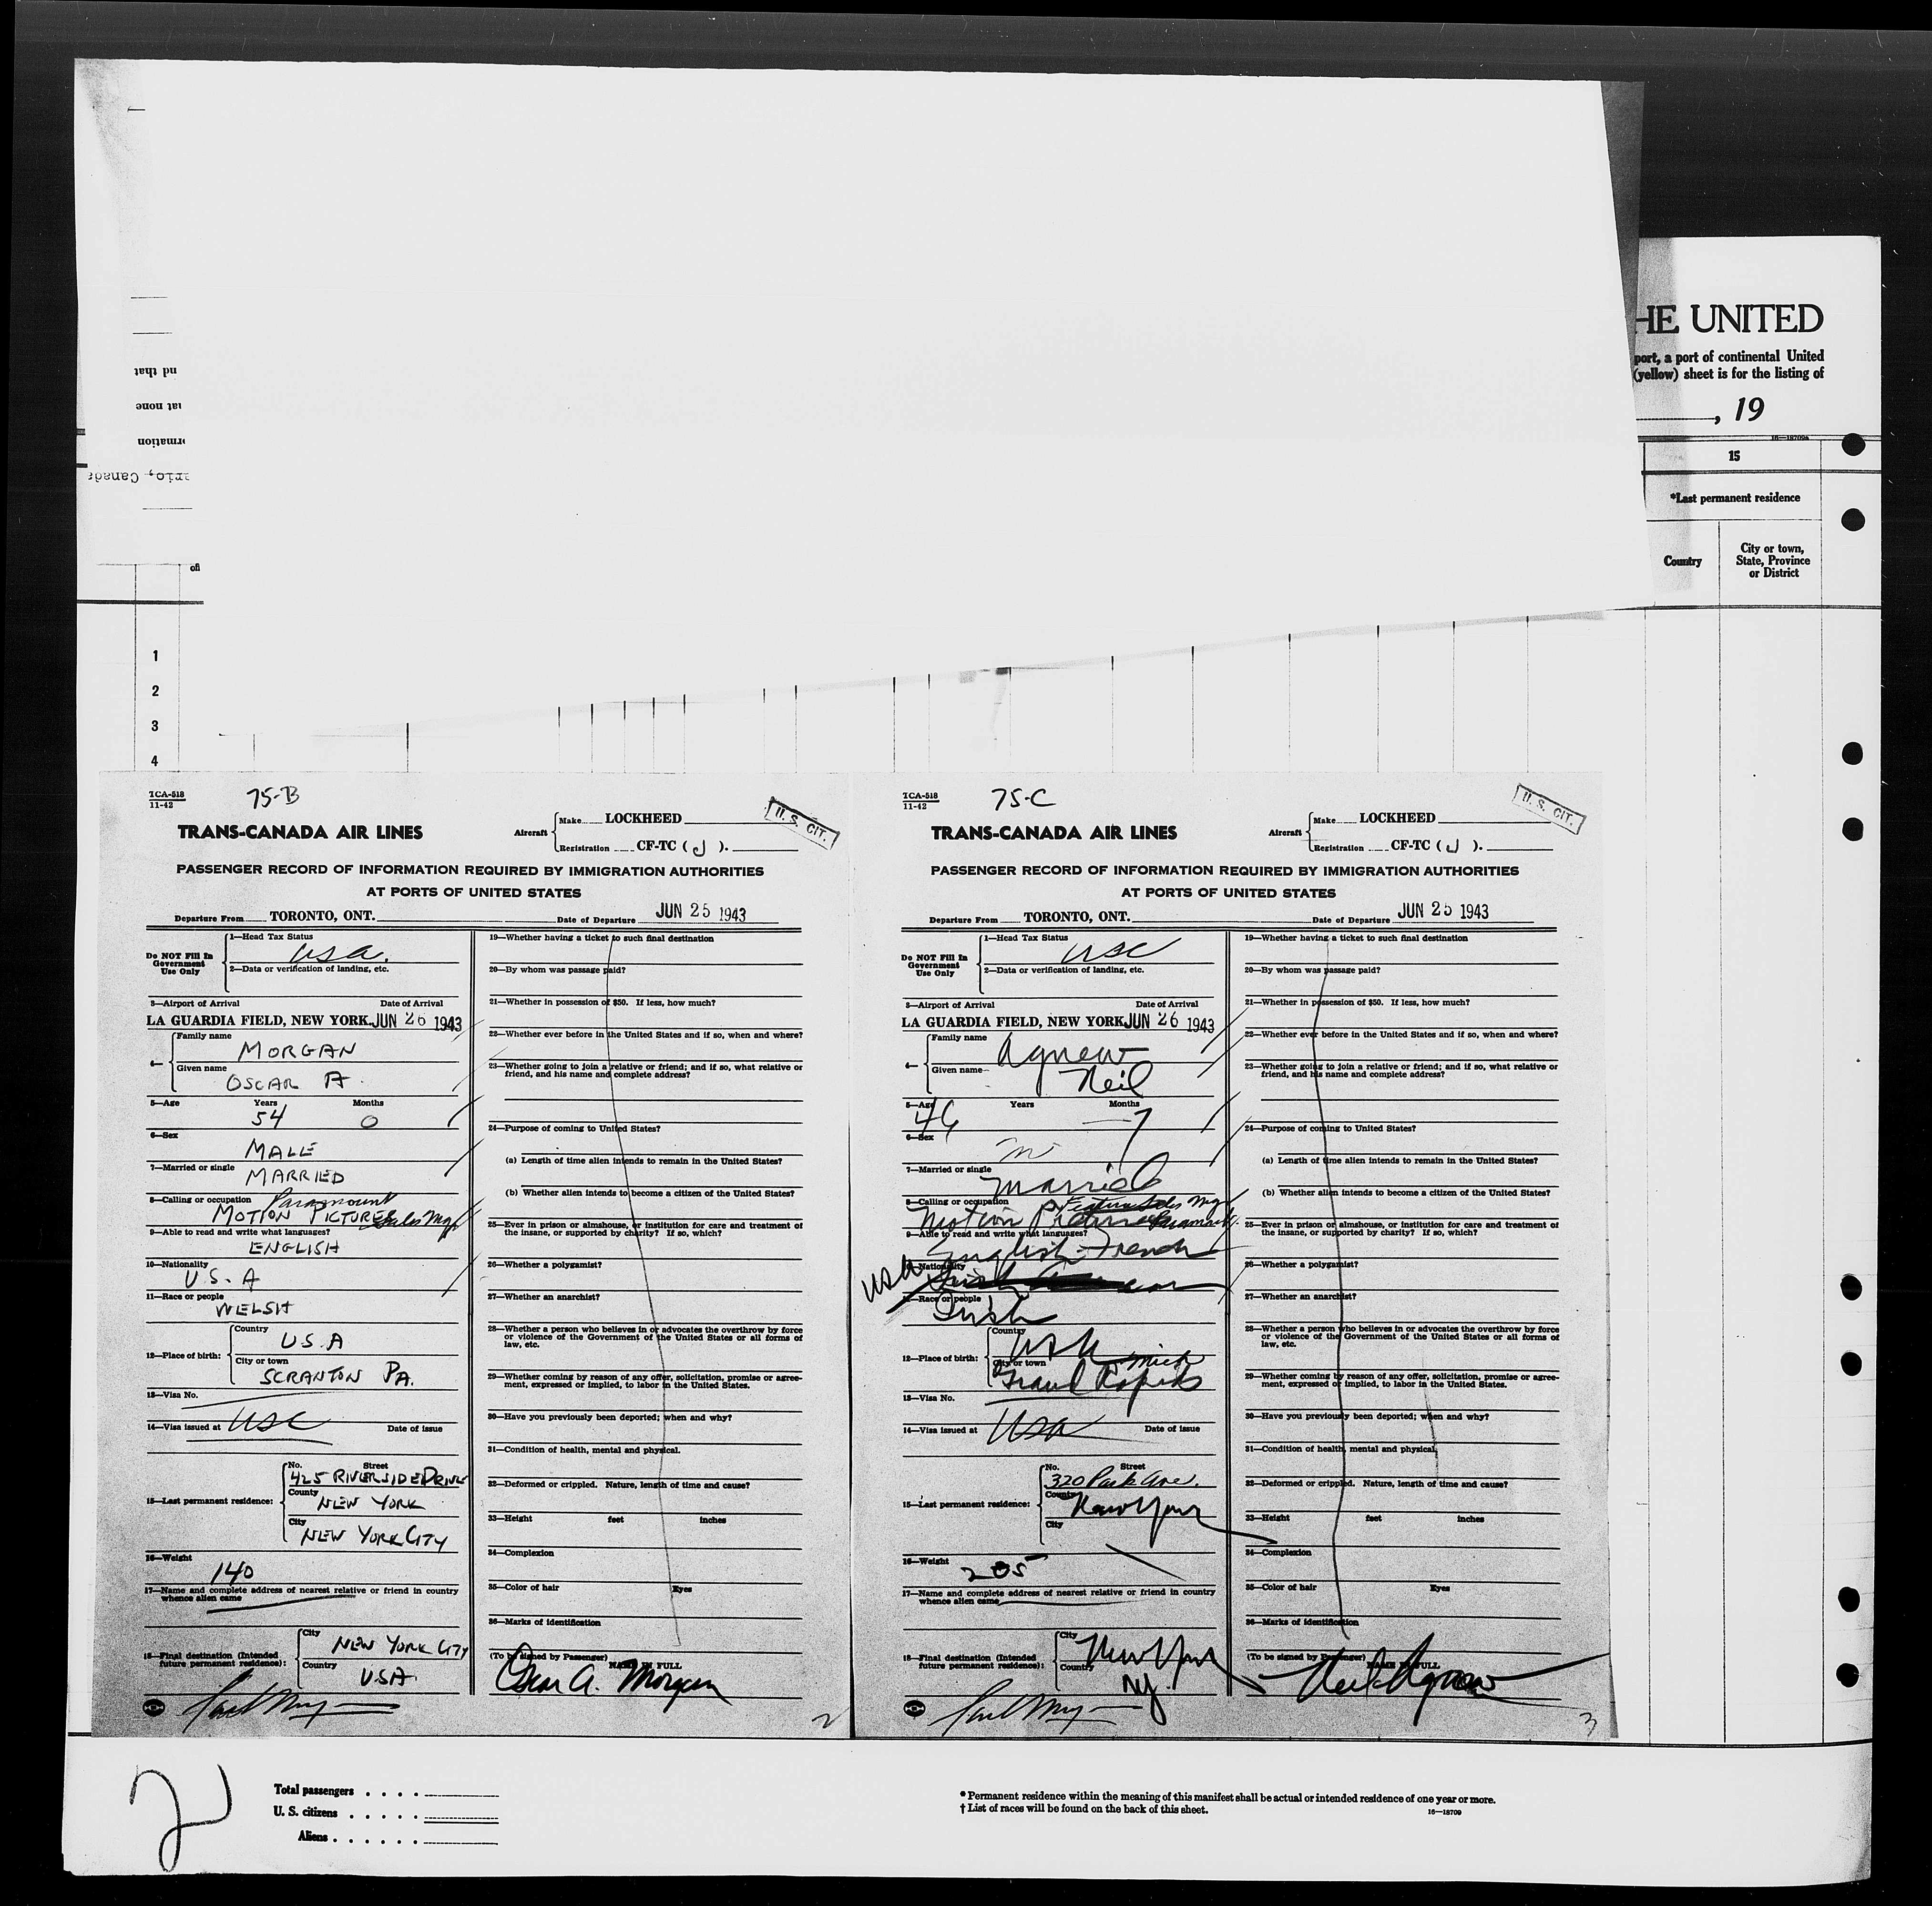 HE UNITED
port, a port of continental United
(yellow) sheet is for the listing of
, 19
16—18709a
15
*Last permanent residence
Country
City or town,
State, Province
or District
nd that
at none
rmation
ario, Canada
of
1
2
3
4
TCA-518
11-42
75-B
U. S. CIT.
TRANS-CANADA AIR LINES
Aircraft
Make LOCKHEED
Registration CF-TC ( J ).
PASSENGER RECORD OF INFORMATION REQUIRED BY IMMIGRATION AUTHORITIES
AT PORTS OF UNITED STATES
Departure From TORONTO, ONT. Date of Departure JUN 25 1943
Do NOT Fill In
Government
Use Only
1—Head Tax Status
USA.
2—Data or verification of landing, etc.
3—Airport of Arrival Date of Arrival
LA GUARDIA FIELD, NEW YORK. JUN 26 1943
4—
Family name
MORGAN
Given name
OSCAR A.
5—Age Years Months
54 0
6—Sex
MALE
7—Married or single
MARRIED
8—Calling or occupation Paramount
MOTION PICTURES Sales Mgr
9—Able to read and write what languages?
ENGLISH
10—Nationality
U.S.A
11—Race or people
WELSH
12—Place of birth:
Country
U.S.A
City or town
SCRANTON PA.
13—Visa No.
14—Visa issued at USC Date of issue
15—Last permanent residence:
No. Street
425 RIVERSIDE DRIVE
County
NEW YORK
City
NEW YORK CITY
16—Weight
140
17—Name and complete address of nearest relative or friend in country
whence alien came
18—Final destination (Intended
future permanent residence):
City
NEW YORK CITY
Country
USA.
19—Whether having a ticket to such final destination
20—By whom was passage paid?
21—Whether in possession of $50. If less, how much?
22—Whether ever before in the United States and if so, when and where?
23—Whether going to join a relative or friend; and if so, what relative or
friend, and his name and complete address?
24—Purpose of coming to United States?
(a) Length of time alien intends to remain in the United States?
(b) Whether alien intends to become a citizen of the United States?
25—Ever in prison or almshouse, or institution for care and treatment of
the insane, or supported by charity? If so, which?
26—Whether a polygamist?
27—Whether an anarchist?
28—Whether a person who believes in or advocates the overthrow by force
or violence of the Government of the United States or all forms of
law, etc.
29—Whether coming by reason of any offer, solicitation, promise or agree-
ment, expressed or implied, to labor in the United States.
30—Have you previously been deported; when and why?
31—Condition of health, mental and physical.
32—Deformed or crippled. Nature, length of time and cause?
33—Height feet inches
34—Complexion
35—Color of hair Eyes
36—Marks of identification
(To be signed by Passenger) NAME IN FULL
Oscar A. Morgan
2
TCA-518
11-42
75-C
U. S. CIT.
TRANS-CANADA AIR LINES
Aircraft
Make LOCKHEED
Registration CF-TC ( J ).
PASSENGER RECORD OF INFORMATION REQUIRED BY IMMIGRATION AUTHORITIES
AT PORTS OF UNITED STATES
Departure From TORONTO, ONT. Date of Departure JUN 25 1943
Do NOT Fill In
Government
Use Only
1—Head Tax Status
USC
2—Data or verification of landing, etc.
3—Airport of Arrival Date of Arrival
LA GUARDIA FIELD, NEW YORK JUN 26 1943
4—
Family name
Agnew
Given name
Neil
5—Age Years Months
46 — 7
6—Sex
M
7—Married or single
Married
8—Calling or occupation Feature Sales Mgr
Motion Pictures Paramount
9—Able to read and write what languages?
English - French
10—Nationality
USA
11—Race or people
Irish
12—Place of birth:
Country
USA
City or town Mich
Grand Rapids
13—Visa No.
14—Visa issued at USA Date of issue
15—Last permanent residence:
No. Street
320 Park Ave.
County
New York
City
16—Weight
205
17—Name and complete address of nearest relative or friend in country
whence alien came
18—Final destination (Intended
future permanent residence):
City
New York
Country
NY.
19—Whether having a ticket to such final destination
20—By whom was passage paid?
21—Whether in possession of $50. If less, how much?
22—Whether ever before in the United States and if so, when and where?
23—Whether going to join a relative or friend; and if so, what relative or
friend, and his name and complete address?
24—Purpose of coming to United States?
(a) Length of time alien intends to remain in the United States?
(b) Whether alien intends to become a citizen of the United States?
25—Ever in prison or almshouse, or institution for care and treatment of
the insane, or supported by charity? If so, which?
26—Whether a polygamist?
27—Whether an anarchist?
28—Whether a person who believes in or advocates the overthrow by force
or violence of the Government of the United States or all forms of
law, etc.
29—Whether coming by reason of any offer, solicitation, promise or agree-
ment, expressed or implied, to labor in the United States.
30—Have you previously been deported; when and why?
31—Condition of health, mental and physical.
32—Deformed or crippled. Nature, length of time and cause?
33—Height feet inches
34—Complexion
35—Color of hair Eyes
36—Marks of identification
(To be signed by Passenger) NAME IN FULL
Neil Agnew
3
2
Total passengers
U. S. citizens
Aliens
* Permanent residence within the meaning of this manifest shall be actual or intended residence of one year or more.
† List of races will be found on the back of this sheet.
16—18709